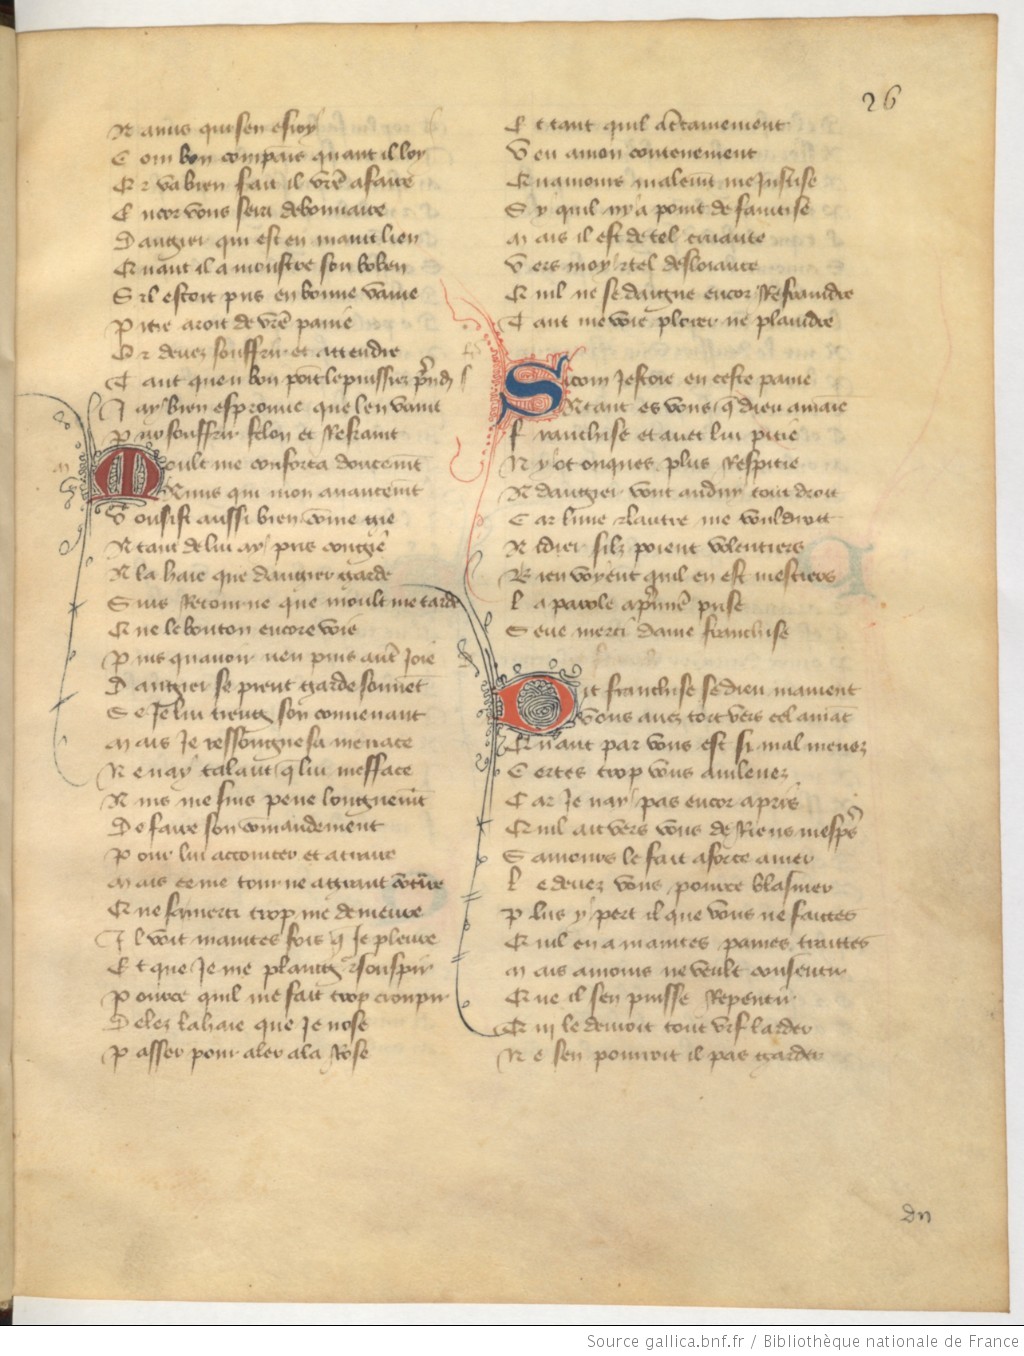 26
Et tant quil actainement
A amis qui sen esioy
Com bon compains quant il loy
Or va bien fait il vre afaire
Encor vous sera debonnaire
Dangier qui est en maint lieu
Quant il a monstre son boben
Sil estoit pris en bonne vaine
Pitie aroit de vre paine
Or devez souffrir et attendre
Tant quen bon point le puissiez prendr
Jay bien esprouve que len vaint
Par souffrir felon et Refraint
Moult me conforta doucemt
Amis qui mon avancemt
Vousist aussi bien come gie
Atant de lui ay pris congie
A la haie que dangier garde
Suis Retourne que moult me tarde
Que le bouton encore voie
Puis quavoir nen puis autre Joie
Dangier se prent garde souvent
Se Je lui tieng son convenant
Mais Je ressoingne sa menace
Ne nay talant q lui mefface
Ains me suis pene longuemt
De faire son comandement
Pour lui accointer et atraire
Mais ce me tourne a grant cotre
Que sa merci trop me demeure
Il voit maintes fois q Je pleure
Et que Je me plaing et souspir
Pource quil me fait trop croupir
Delez la haie que Je nose
Passer pour aler a la Rose
Veu a mon contenement
Quamours malemt me Justise
Sy quil ny a point de faintise
Mais il est de tel cruaute
Vers moy et tel desloiaute
Quil ne se daigne encor Refraindre
Tant me voie plorer ne plaindre
Si com Jestoie en ceste paine
Atant es vous q dieu amaine
Franchise et avec lui pitie
Ny ot onques plus Respitie
A dangier vont andui tout droit
Car lune et lautre me vouldroit
Aidier silz poient volentiers
Bien voyent quil en est mestiers
La parole a premiere prise
Seue merci dame franchise
Dit franchise se dieu mament
Vous avez tort vers cel amat
Quant par vous est si mal menez
Certes trop vous avilenez
Car Je nay pas encor apris
Quil ait vers vous de Riens mespris
Samours le fait a force amer
Le devez vous pource blasmer
Plus y pert il que vous ne faictes
Quil en a maintes paines traittes
Mais amours ne veult consentir
Que il sen puisse Repentir
Qui le devoit tout vif larder
Ne sen pourroit il pas garder
Source gallica.bnf.fr / Bibliothèque nationale de France